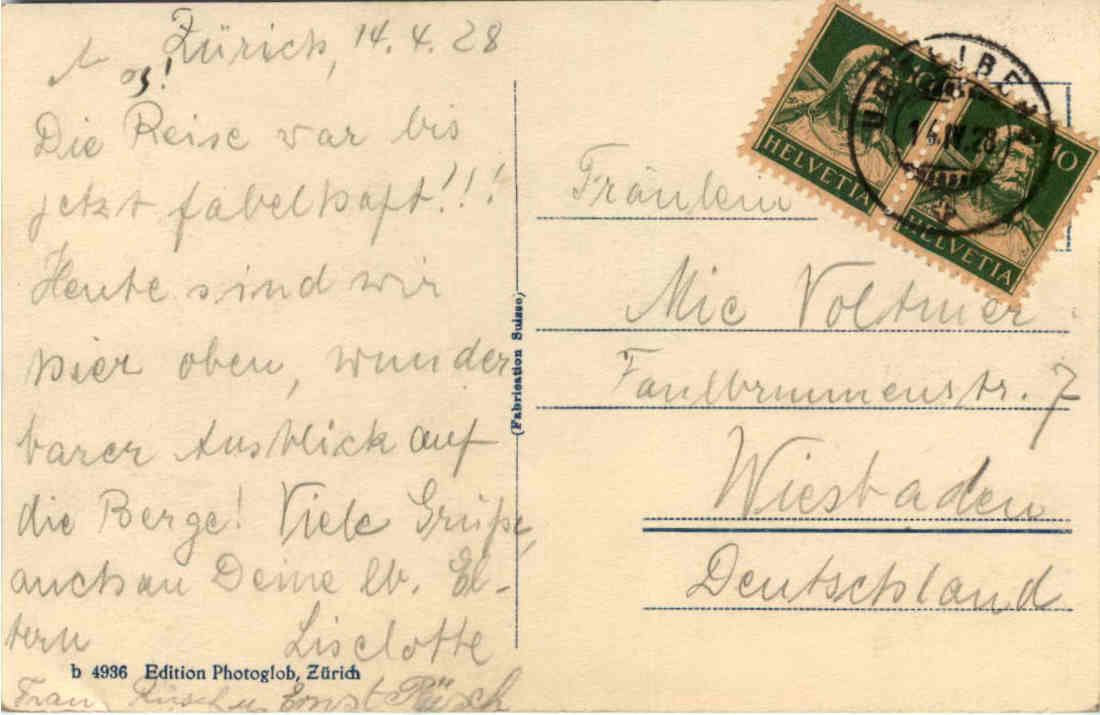 Zürich, 14.4.28
Die Reise war bis
jetzt fabelhaft!!!
Heute sind wir
hier oben, wunder
barer Ausblick auf
die Berge! Viele Grüße,
auch an Deine lb. El-
tern Liselotte
b 4936 Edition Photoglob, Zürich
Frau Rüsch u. Ernst Rüsch
(Fabrication Suisse)
HELVETIA
10
HELVETIA
14.IV.28
Fräulein
Mie Voltmer
Faulbrunnenstr. 7
Wiesbaden
Deutschland